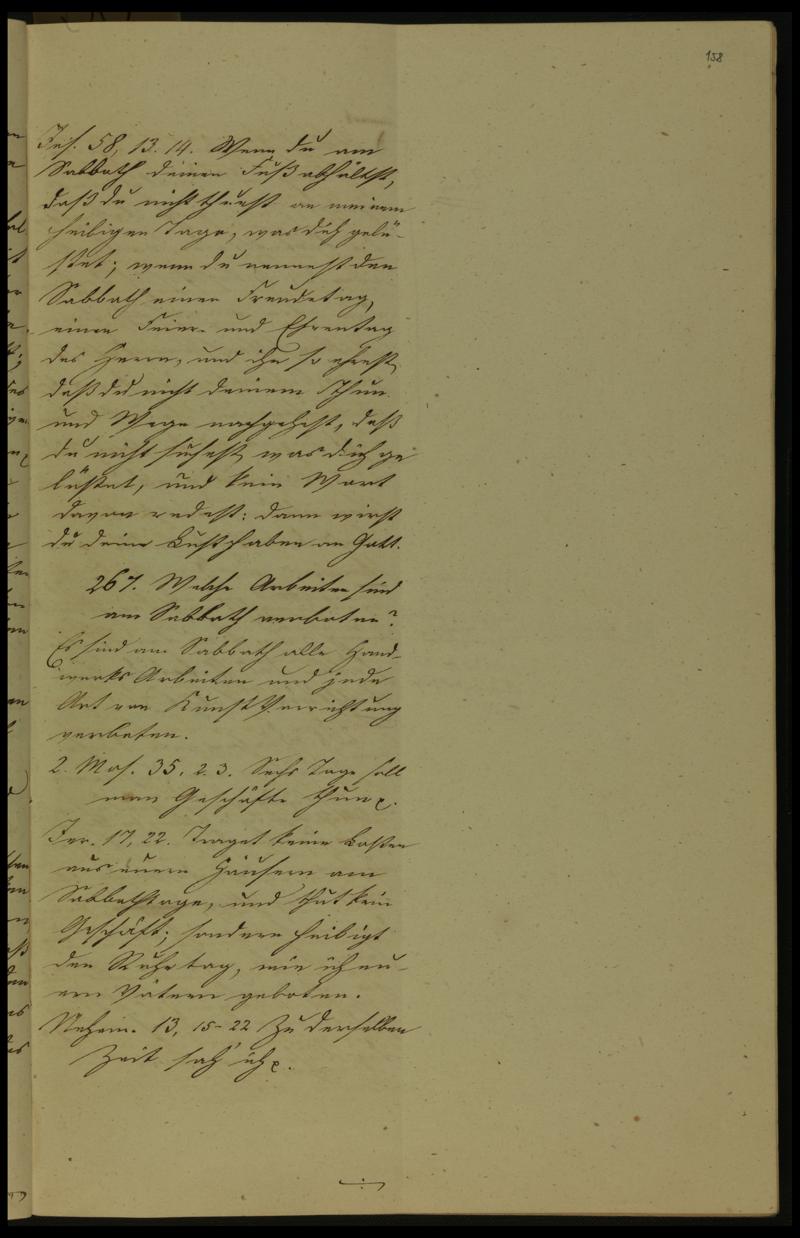 158
Jes. 58, 13. 14. Wenn du am
Sabbath deinen Fuß abhältst,
daß du nicht thuest an meinem
heiligen Tage, was dich gelü-
stet; wenn du nennest den
Sabbath einen Freudetag,
einen Feier- und Ehrentag
des Herrn, und ihn so ehrest,
daß du nicht deinem Thun
und Wege nachgehest, daß
du nicht suchest was dich ge
lüstet, und kein Wort
davon redest: dann wirst
du deine Lust haben an Gott.
267. Welche Arbeiten sind
am Sabbath verboten?
Es sind am Sabbath alle Hand-
werks Arbeiten und jede
Art von Kunst Verrichtung
verboten.
2. Mos. 35, 2. 3. Sechs Tage soll
man Geschäfte thun
Jer. 17, 22. Traget keine Lasten
aus euern Häusern am
Sabbathtage, und thut kein
Geschäft; sondern heiligt
den Ruhetag, wie ich eu-
ern Vätern geboten.
Nehem. 13, 15-22 Zu derselben
Zeit sah ich